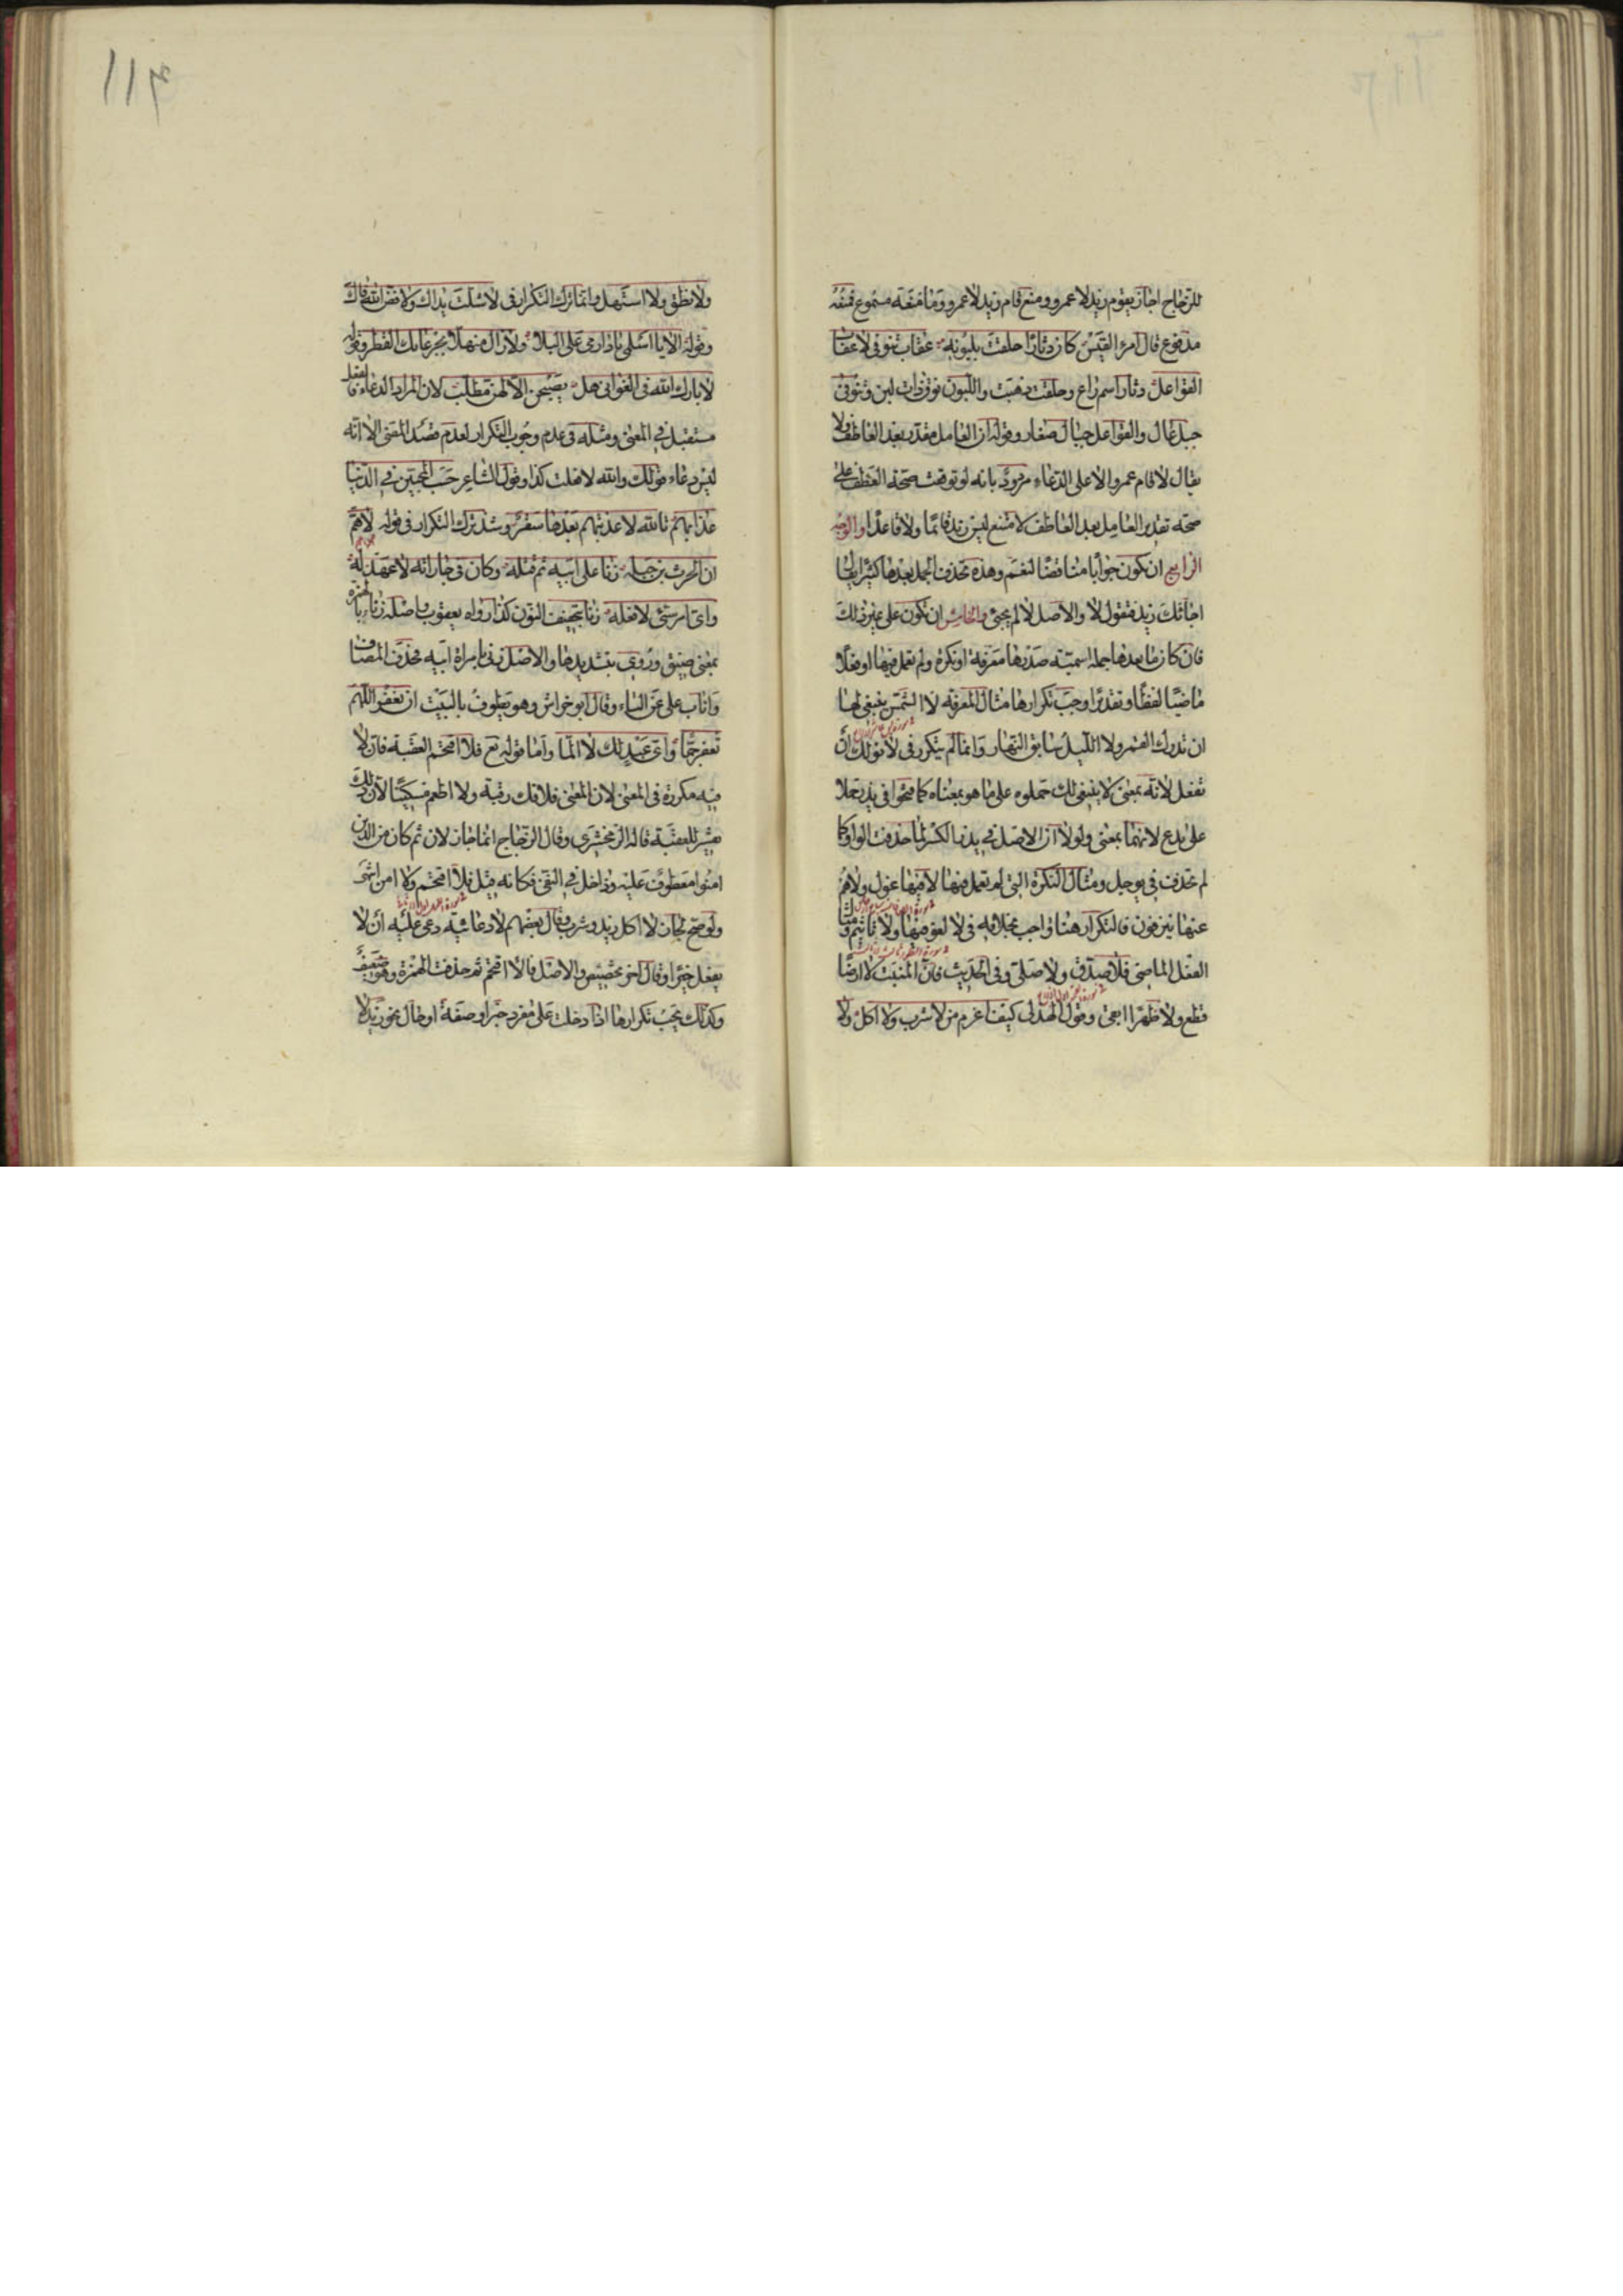 للزجاج اجاز يقوم زيد لا عمرو ومنع قام زيد لا عمرو وما منعه مسموع فمنعه
مدفوع قال امرؤ القيس كان دثارا حلقت بلبونه عقاب تنوفى لا عقاب
القواعل دثار اسم راع وحلقت ذهبت واللبون نوق ذوات لبن وتنوفى
جبل عال والقواعل جبال صغار وقوله ان العامل مقدر بعد العاطف ولا
يقال لا قام عمرو الا على الدعاء مردود بانه لو توقفت صحة العطف على
صحة تقدير العامل بعد العاطف لامتنع ليس زيد قائما ولا قاعدا والوجه
الرابع ان تكون جوابا مناقضا لنعم وهذه تحذف الجمل بعدها كثيرا يقال
اجائك زيد فتقول لا والاصل لا لم يجئ والخامس ان تكون على غير ذلك
فان كان ما بعدها جملة اسمية صدرها معرفة او نكرة ولم تعمل فيها او فعلا
ماضيا لفظا وتقديرا وجب تكرارها مثال المعرفة لا الشمس ينبغي لها
ان تدرك القمر ولا الليل سابق النهار وانما لم يتكرر في لا نولك ان
تفعل لانه بمعنى لا ينبغي لك حملوه على ما هو بمعناه كما فتحوا في يذر حملا
على يدع لانهما بمعنى ولولا ان الاصل في يذر الكسر لما حذفت الواو كما
لم تحذف في يوجل ومثال النكرة التي لم تعمل فيها لا فيها غول ولا هم
عنها ينزفون فالتكرار هنا واجب بخلافه في لا لغو فيها ولا تاثيم ومثال
الفعل الماضي فلا صدق ولا صلى وفي الحديث فان المنبت لا ارضا
قطع ولا ظهرا ابقى وقول الهذلي كيف اغرم من لا شرب ولا اكل ولا
ولا نطق ولا استهل وانما ترك التكرار في لا شلت يداك ولا فض الله فاك
وقوله الا يا اسلمي يا دار مي على البلا ولا زال منهلا بجرعائك القطر وقوله
لا بارك الله في الغواني هل يصبحن الا لهن مطلب لان المراد الدعاء فالفعل
مستقبل في المعنى ومثله في عدم وجوب التكرار لعدم قصد المضي الا انه
ليس دعاء قولك والله لا فعلت كذا وقول الشاعر حسب المحبين في الدنيا
عذابهم تالله لا عذبتهم بعدها سقر وشذ ترك التكرار في قوله لاهم
ان الحرث بن جبله زنا على ابيه ثم قتله وكان في جاراته لا عهد له
واي امر سيئ لا فعله زنا بتخفيف النون كذا رواه يعقوب واصله زناء بالهمزة
بمعنى ضيق وروي بتشديدها والاصل زنى بامراة ابيه فحذف المضاف
واناب على عن الباء وقال ابو خراش وهو يطوف بالبيت ان تغفر اللهم
تغفر جما واي عبد لك لا الما واما قوله تع فلا اقتحم العقبة فان لا
فيه مكررة في المعنى لان المعنى فلا فك رقبة ولا اطعم مسكينا لان ذلك
تفسير للعقبة قاله الزمخشري وقال الزجاج انما جاز لان ثم كان من الذين
امنوا معطوف عليه وداخل في النفي فكانه قيل فلا اقتحم ولا امن انتهى
ولو صح لجاز لا اكل زيد وشرب وقال بعضهم لا دعائية دعى عليه ان لا
يفعل خيرا وقال اخر تحضيض والاصل فالا اقتحم ثم حذفت الهمزة وهو ضعيف
وكذلك يجب تكرارها اذا دخلت على مفرد خبر او صفة او حال نحو زيد لا